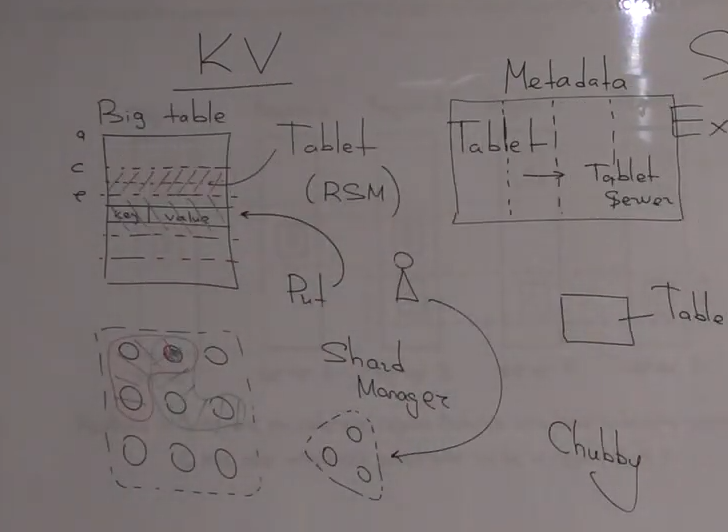 KV
Big table
a
c
e
key value
Tablet
(RSM)
Put
Shard
Manager
Metadata
Tablet
→ Tablet
Server
S
Ex
Table
Chubby